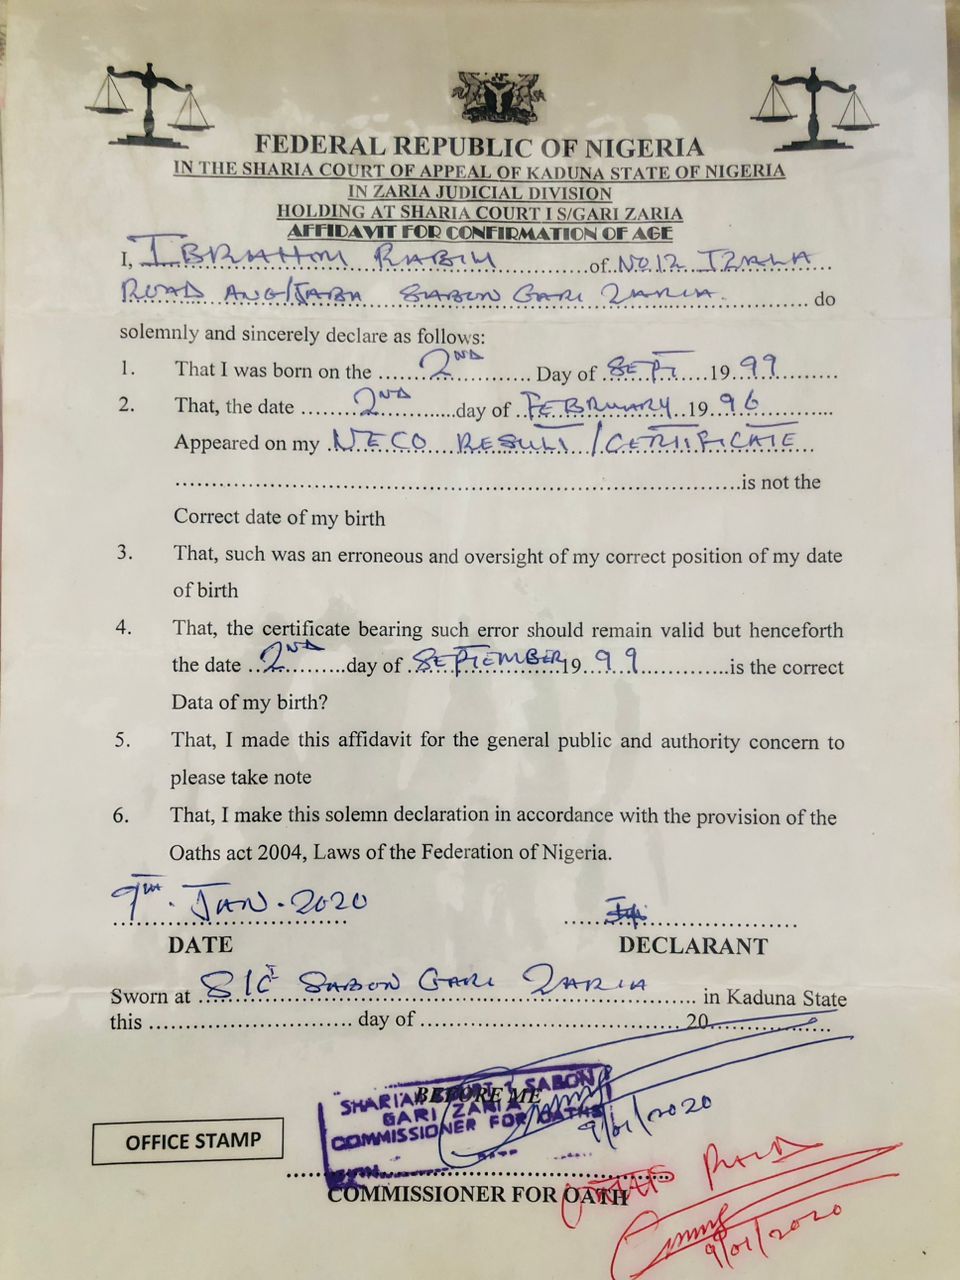 FEDERAL REPUBLIC OF NIGERIA
IN THE SHARIA COURT OF APPEAL OF KADUNA STATE OF NIGERIA
IN ZARIA JUDICIAL DIVISION
HOLDING AT SHARIA COURT I S/GARI ZARIA
AFFIDAVIT FOR CONFIRMATION OF AGE
I, IBRAHIM RABIU of NO.12 IZALA
ROAD ANG/JABA SABON GARI ZARIA. do
solemnly and sincerely declare as follows:
1. That I was born on the 2ND Day of SEPT 1999
2. That, the date 2ND day of FEBRUARY 1996
Appeared on my NECO RESULT/CERTIFICATE
is not the
Correct date of my birth
3. That, such was an erroneous and oversight of my correct position of my date
of birth
4. That, the certificate bearing such error should remain valid but henceforth
the date 2ND day of SEPTEMBER 1999 is the correct
Data of my birth?
5. That, I made this affidavit for the general public and authority concern to
please take note
6. That, I make this solemn declaration in accordance with the provision of the
Oaths act 2004, Laws of the Federation of Nigeria.
9TH. JAN. 2020
DATE DECLARANT
Sworn at S/C I SABON GARI ZARIA in Kaduna State
this day of 20
BEFORE ME
SHARIA COURT 1 SABON
GARI ZARIA
COMMISSIONER FOR OATHS
9/01/2020
OFFICE STAMP
COMMISSIONER FOR OATH
PAID
9/01/2020